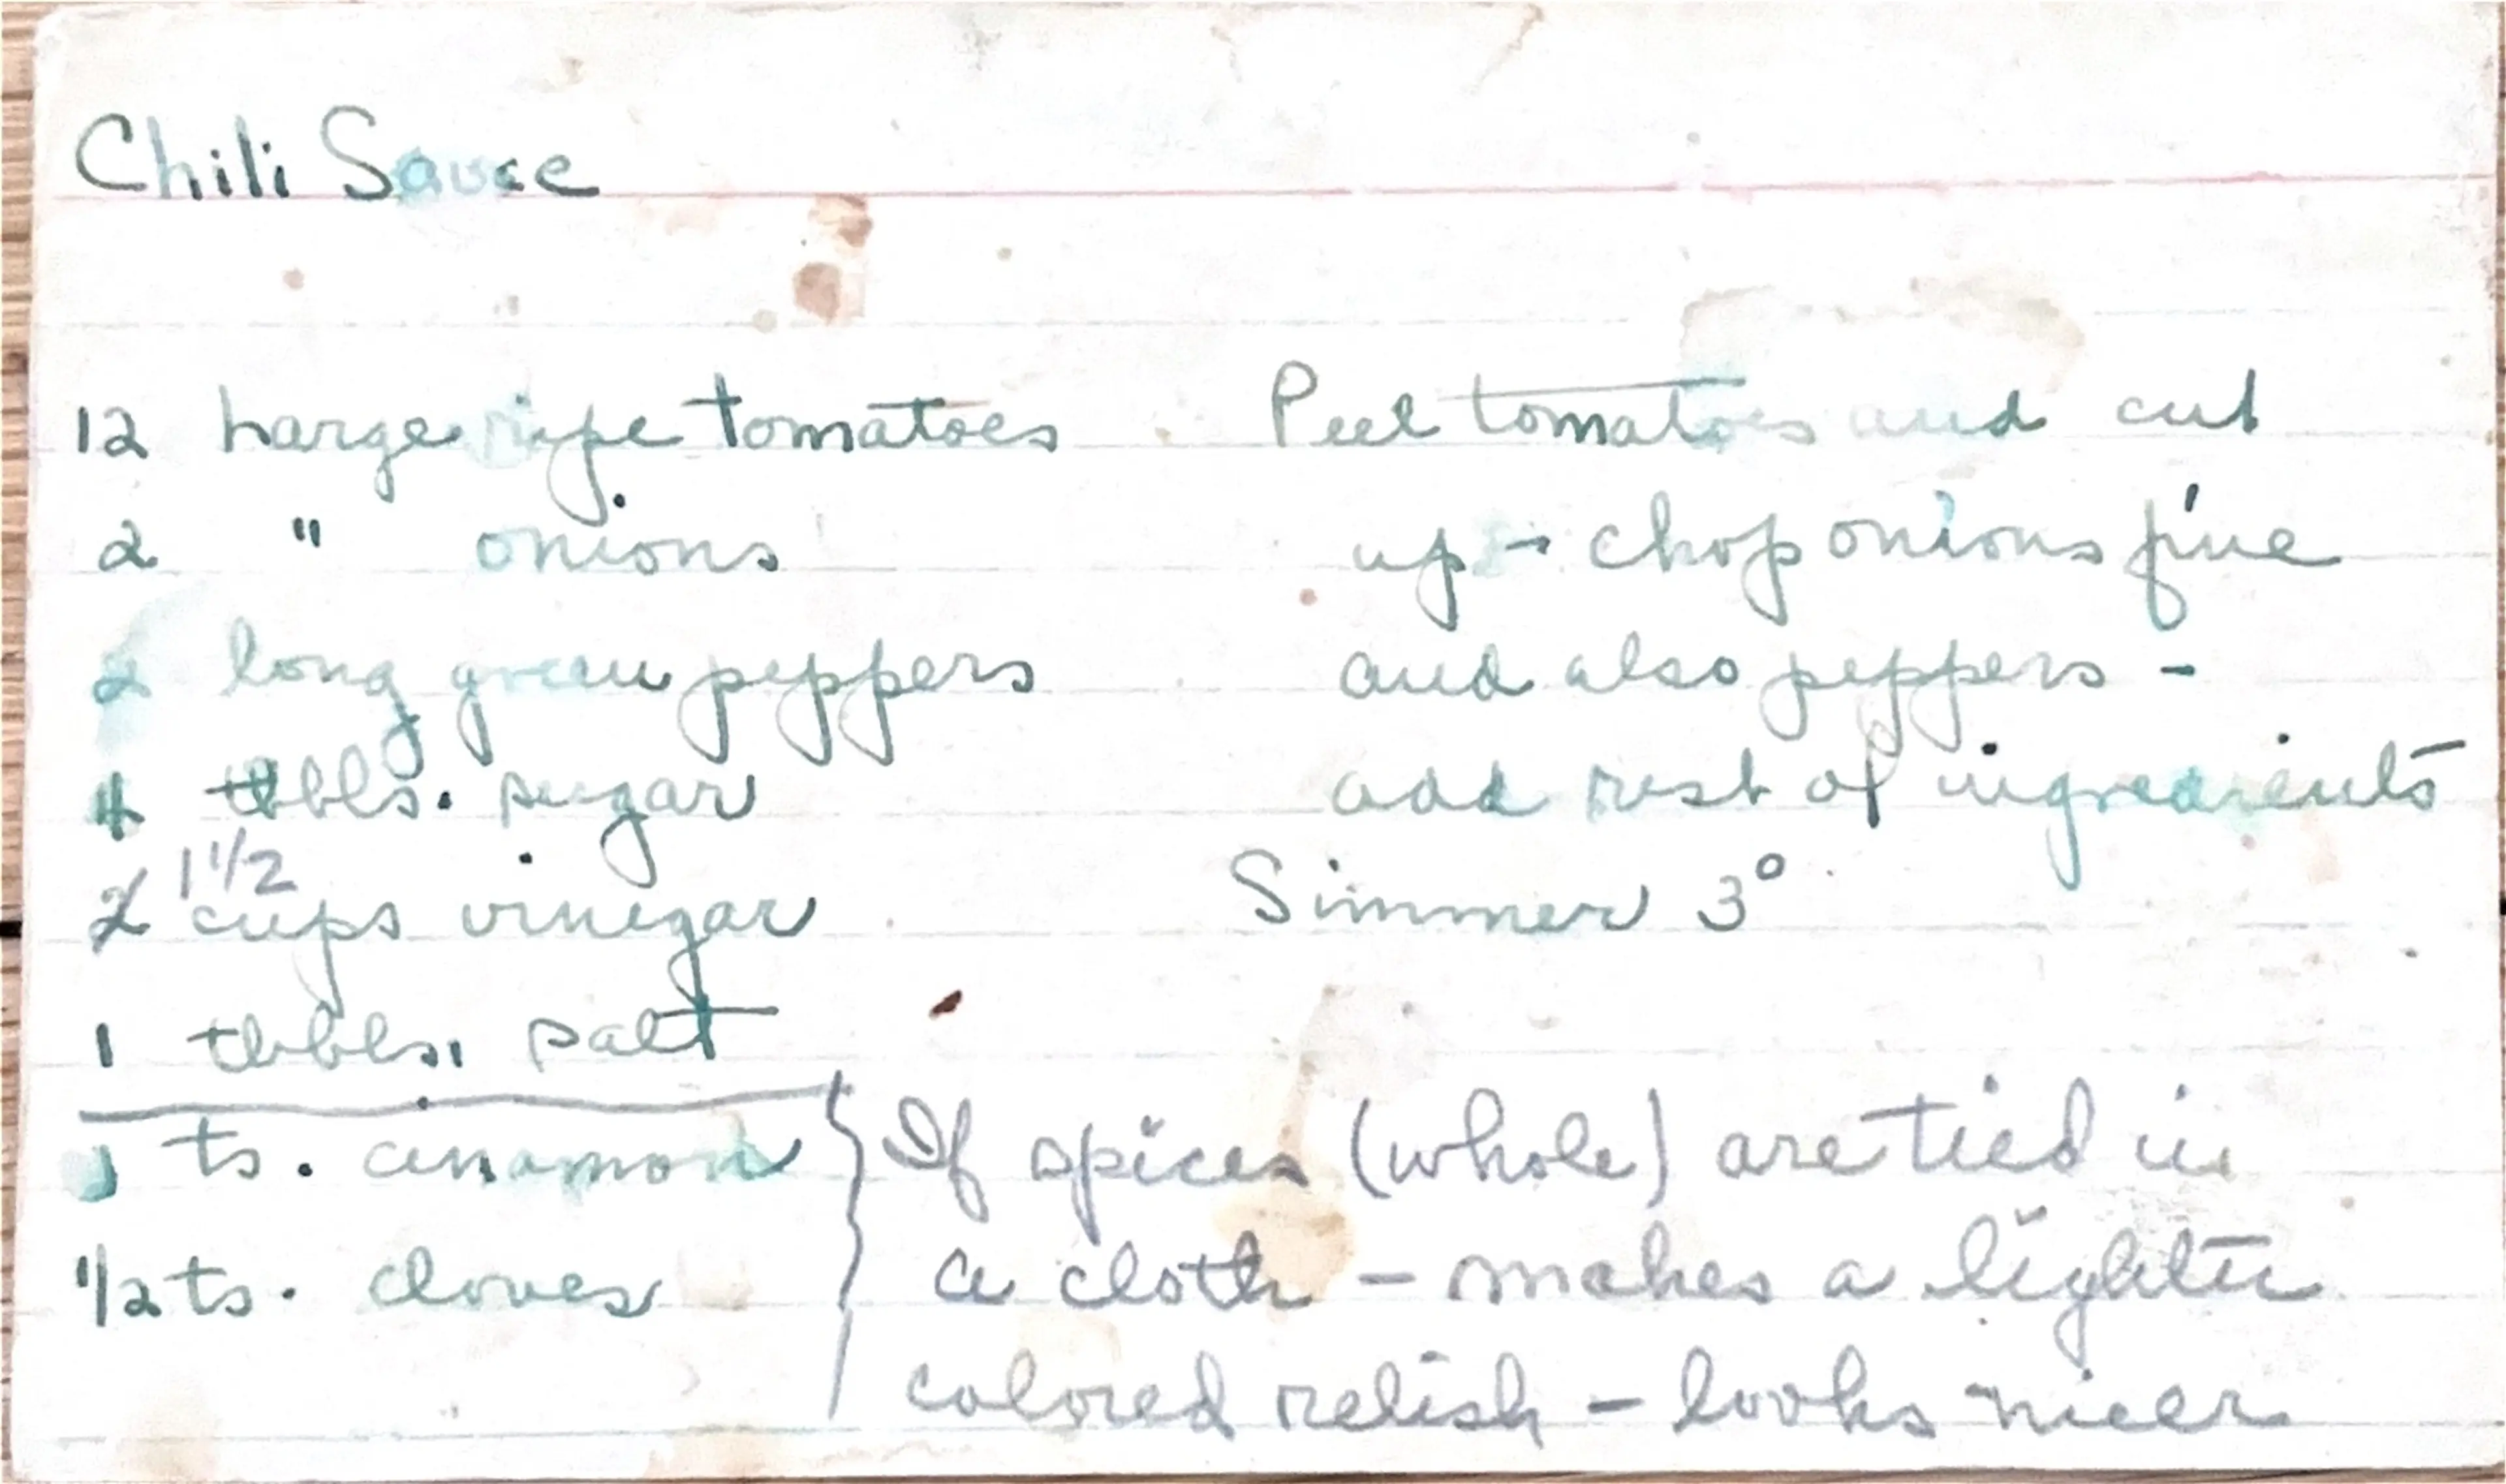 Chili Sauce
12 Large ripe tomatoes
2 " onions
2 long green peppers
4 tbbls. sugar
2 1 1/2 cups vinegar
1 tbbls. salt
1 ts. cinamon
1/2 ts. cloves
Peel tomatoes and cut
up - chop onions fine
and also peppers -
add rest of ingredients
Simmer 3°
If spices (whole) are tied in
a cloth - makes a lighter
colored relish - looks nicer